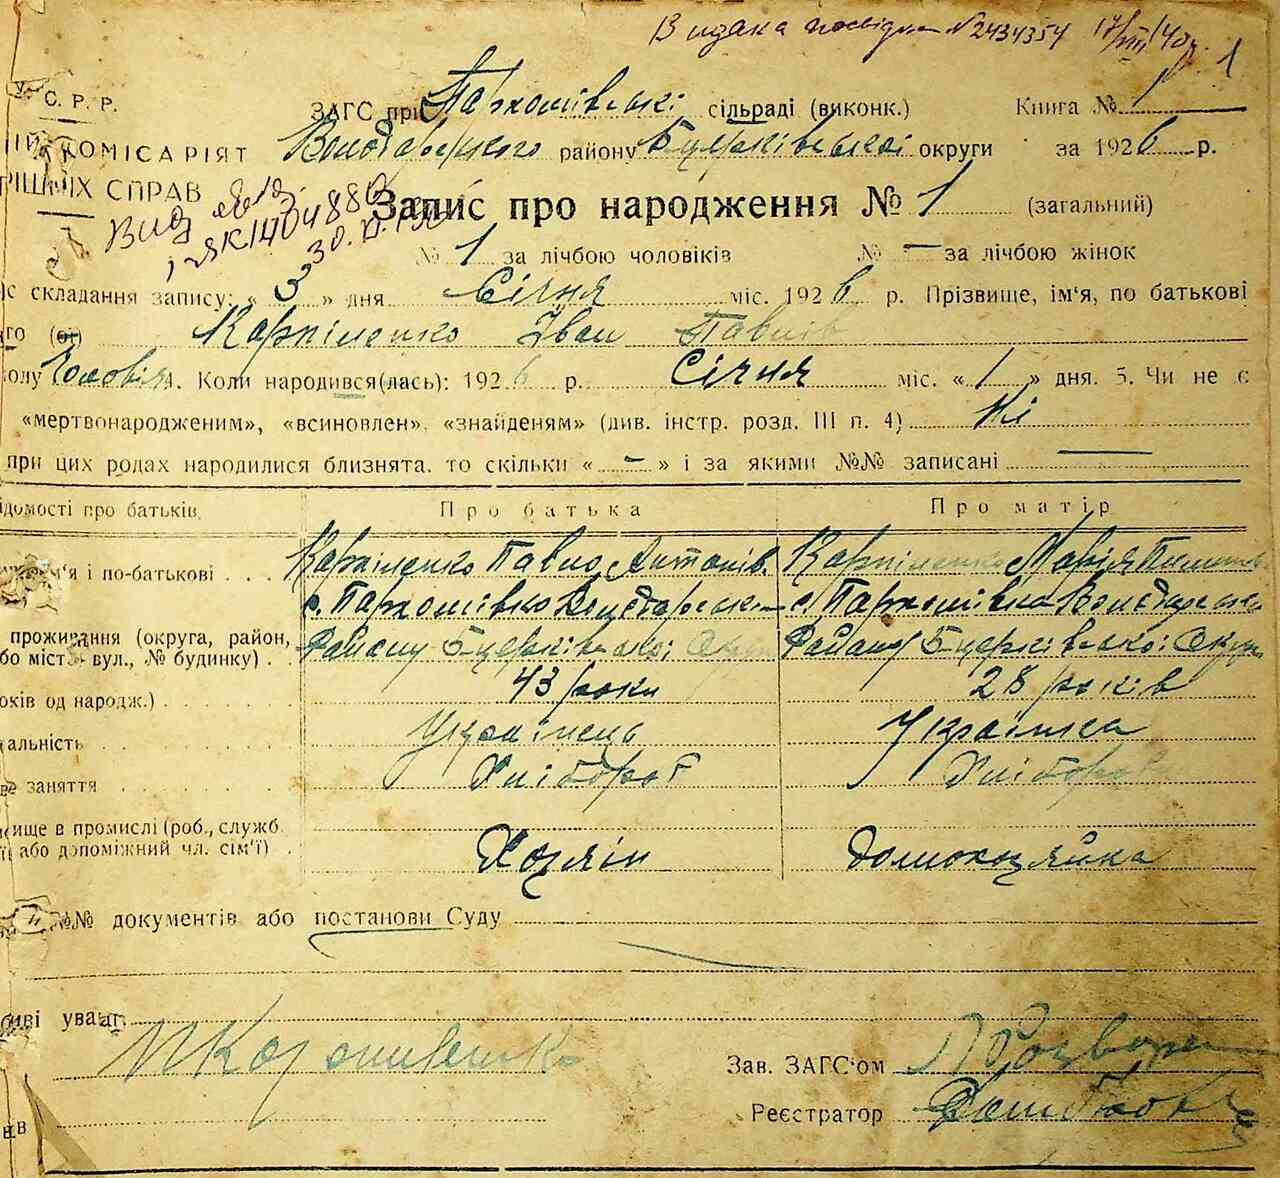 Видана посвідка №2434354 17/VIII 40р. 1
У. С. Р. Р.
ЗАГС при Пархомівській сільраді (виконк.) Книга № 1
КОМІСАРІЯТ Володарського району Б.церківської округи за 1926 р.
РІШНІХ СПРАВ
30.
Запис про народження № 1 (загальний)
№ 1 за лічбою чоловіків № — за лічбою жінок
с складання запису: « 3 » дня Січня міс. 1926 р. Прізвище, ім'я, по батькові
го (ої) Карпіленко Іван Павлів
Чоловіча 4. Коли народився(лась): 1926 р. Січня міс. « 1 » дня. 5. Чи не є
«мертвонародженим», «всиновлен», «знайденям» (див. інстр. розд. III п. 4) Ні
при цих родах народилися близнята, то скільки « – » і за якими №№ записані —
ідомості про батьків Про батька Про матір
м'я і по-батькові Карпіленко Павло Антонів. Карпіленко Марія
с. Пархомівка Володарськ с. Пархомівка Володарська
проживання (округа, район, Району Б церківської Округ Району Б церківської Округ
бо місто вул., № будинку)
оків од народж.) 43 роки 28 років
альність Українець Українка
ве заняття Хлібороб Хлібороб
ище в промислі (роб., служб.
або допоміжний чл. сім'ї) Хозяїн домохозяйка
№№ документів або постанови Суду
иві уваги
Зав. ЗАГС'ом
Реєстратор